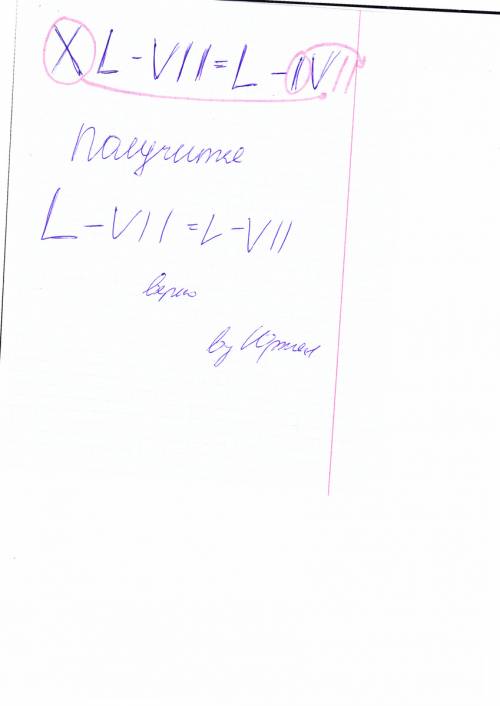 XL-VII=L-IVII
Получится
L-VII=L-VII
верно
by